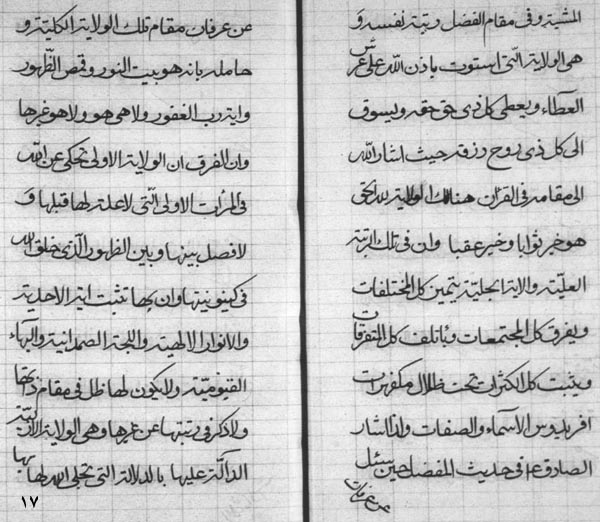 المشیته و فی مقام الفضل رتبته نفسه و
هی الولایة الّتی استوت باذن الله علی عرش
العطاء و یعطی کل ذی حق حقه و یسوق
الی کل ذی روح رزقه حیث اشار الله
الی مقامه فی القران هنالك الولایة لله الحق
هو خیر ثوابا و خیر عقبا و ان فی تلك الرتبة
العلیّة و الایة الجلیّة یتمیز کل المختلفات
و یفرق کل المجتمعات و یأتلف کل المتفرقات
و یثبت کل الکثرات تحت ظلال مکفهرات
افریدوس الأسماء و الصفات و لذا اشار
الصادق ع فی حدیث المفضل حین سئل
عن عرفان
عن عرفان مقام تلك الولایة الکلیّة و
حامله بانه هو بیت النور و قمص الظهور
و ایة رب الغفور و لا هی هو و لا هو غیرها
و ان الفرق ان الولایة الاولی تحکی عن الله
فی المرات الاولی الّتی لا علة لها قبلها و
لا فصل بینها و بین الظهور الّذی خلق الله
فی کینونیتها و ان بها تثبت ایة الاحدیة
و الانوار الالهیة و اللجة الصمدانیة و البهاء
القیومیّة و لا یکون لها ظل فی مقام ذاتها
و لا ذکر فی رتبتها عن غیرها و هی الولایة الازلیّة
الدالّة علیها بالدلالة التی تجلی الله لها بها
۱۷